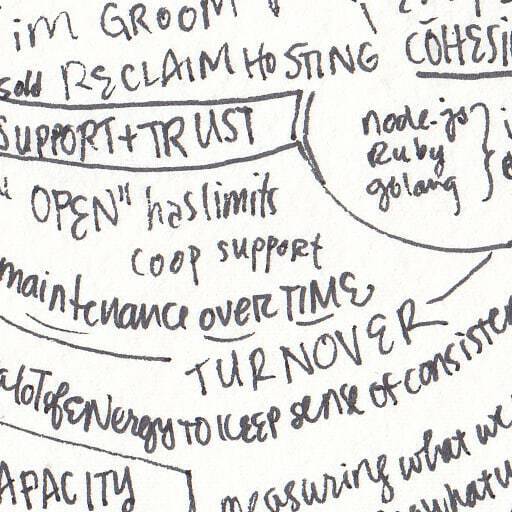 im GROOM
sold RECLAIM HOSTING
COHESI
SUPPORT + TRUST
node.js
Ruby
golang
"OPEN" has limits
COOP SUPPORT
maintenance OVER TIME
TURNOVER
a lot of ENERGY TO KEEP sense of consisten
APACITY
measuring what we
what w